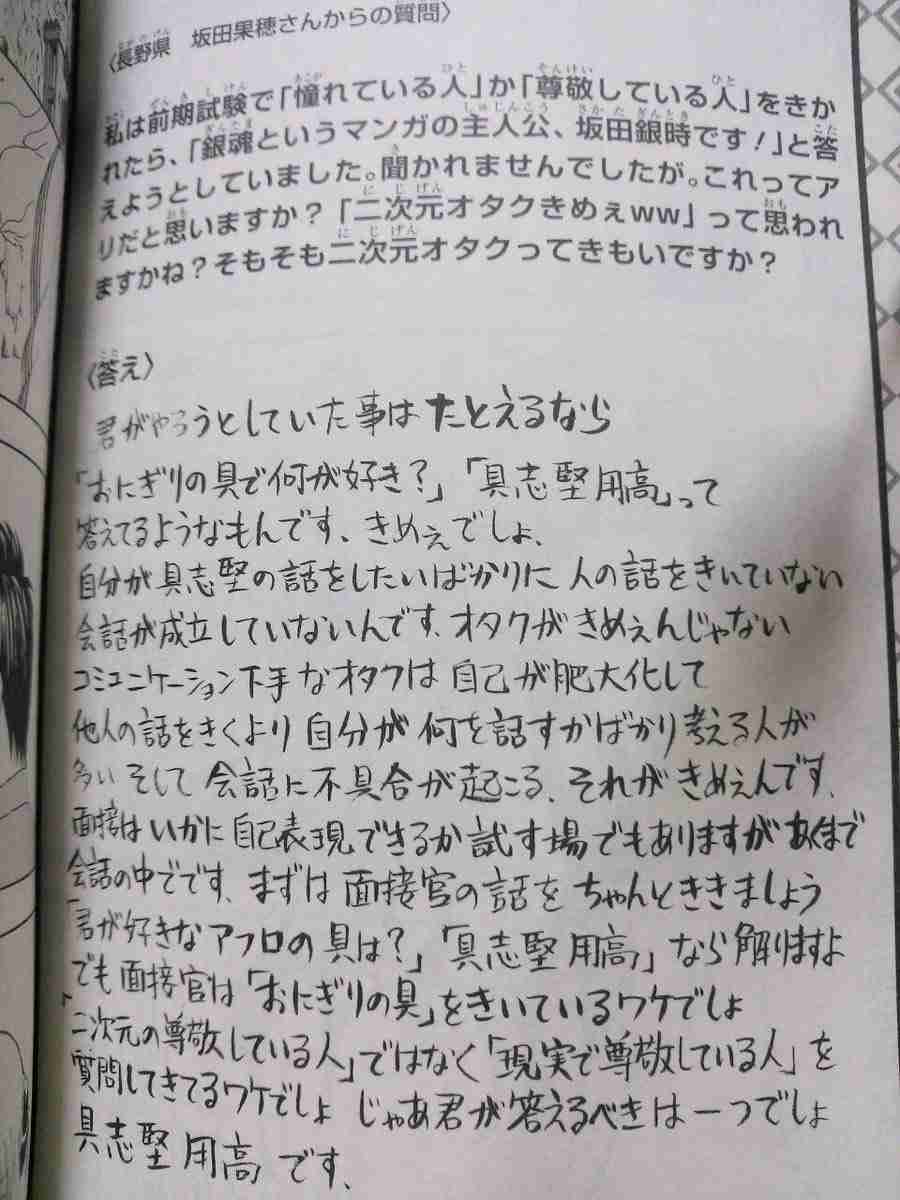 〈長野県　坂田果穂さんからの質問〉
私は前期試験で「憧れている人」か「尊敬している人」をきか
れたら、「銀魂というマンガの主人公、坂田銀時です！」と答
えようとしていました。聞かれませんでしたが。これってア
リだと思いますか？「二次元オタクきめぇww」って思われ
ますかね？そもそも二次元オタクってきもいですか？
〈答え〉
君がやろうとしていた事はたとえるなら
「おにぎりの具で何が好き？」「具志堅用高」って
答えてるようなもんです、きめぇでしょ、
自分が具志堅の話をしたいばかりに人の話をきいていない
会話が成立していないんです、オタクがきめぇんじゃない
コミュニケーション下手なオタクは自己が肥大化して
他人の話をきくより自分が何を話すかばかり考える人が
多いそして会話に不具合が起こる、それがきめぇんです、
面接はいかに自己表現できるか試す場でもありますがあくまで
会話の中でです、まずは面接官の話をちゃんとききましょう
「君が好きなアフロの具は？」「具志堅用高」なら解りますよ
でも面接官は「おにぎりの具」をきいているワケでしょ
「二次元の尊敬している人」ではなく「現実で尊敬している人」を
質問してきてるワケでしょ じゃあ君が答えるべきは一つでしょ
具志堅用高です、